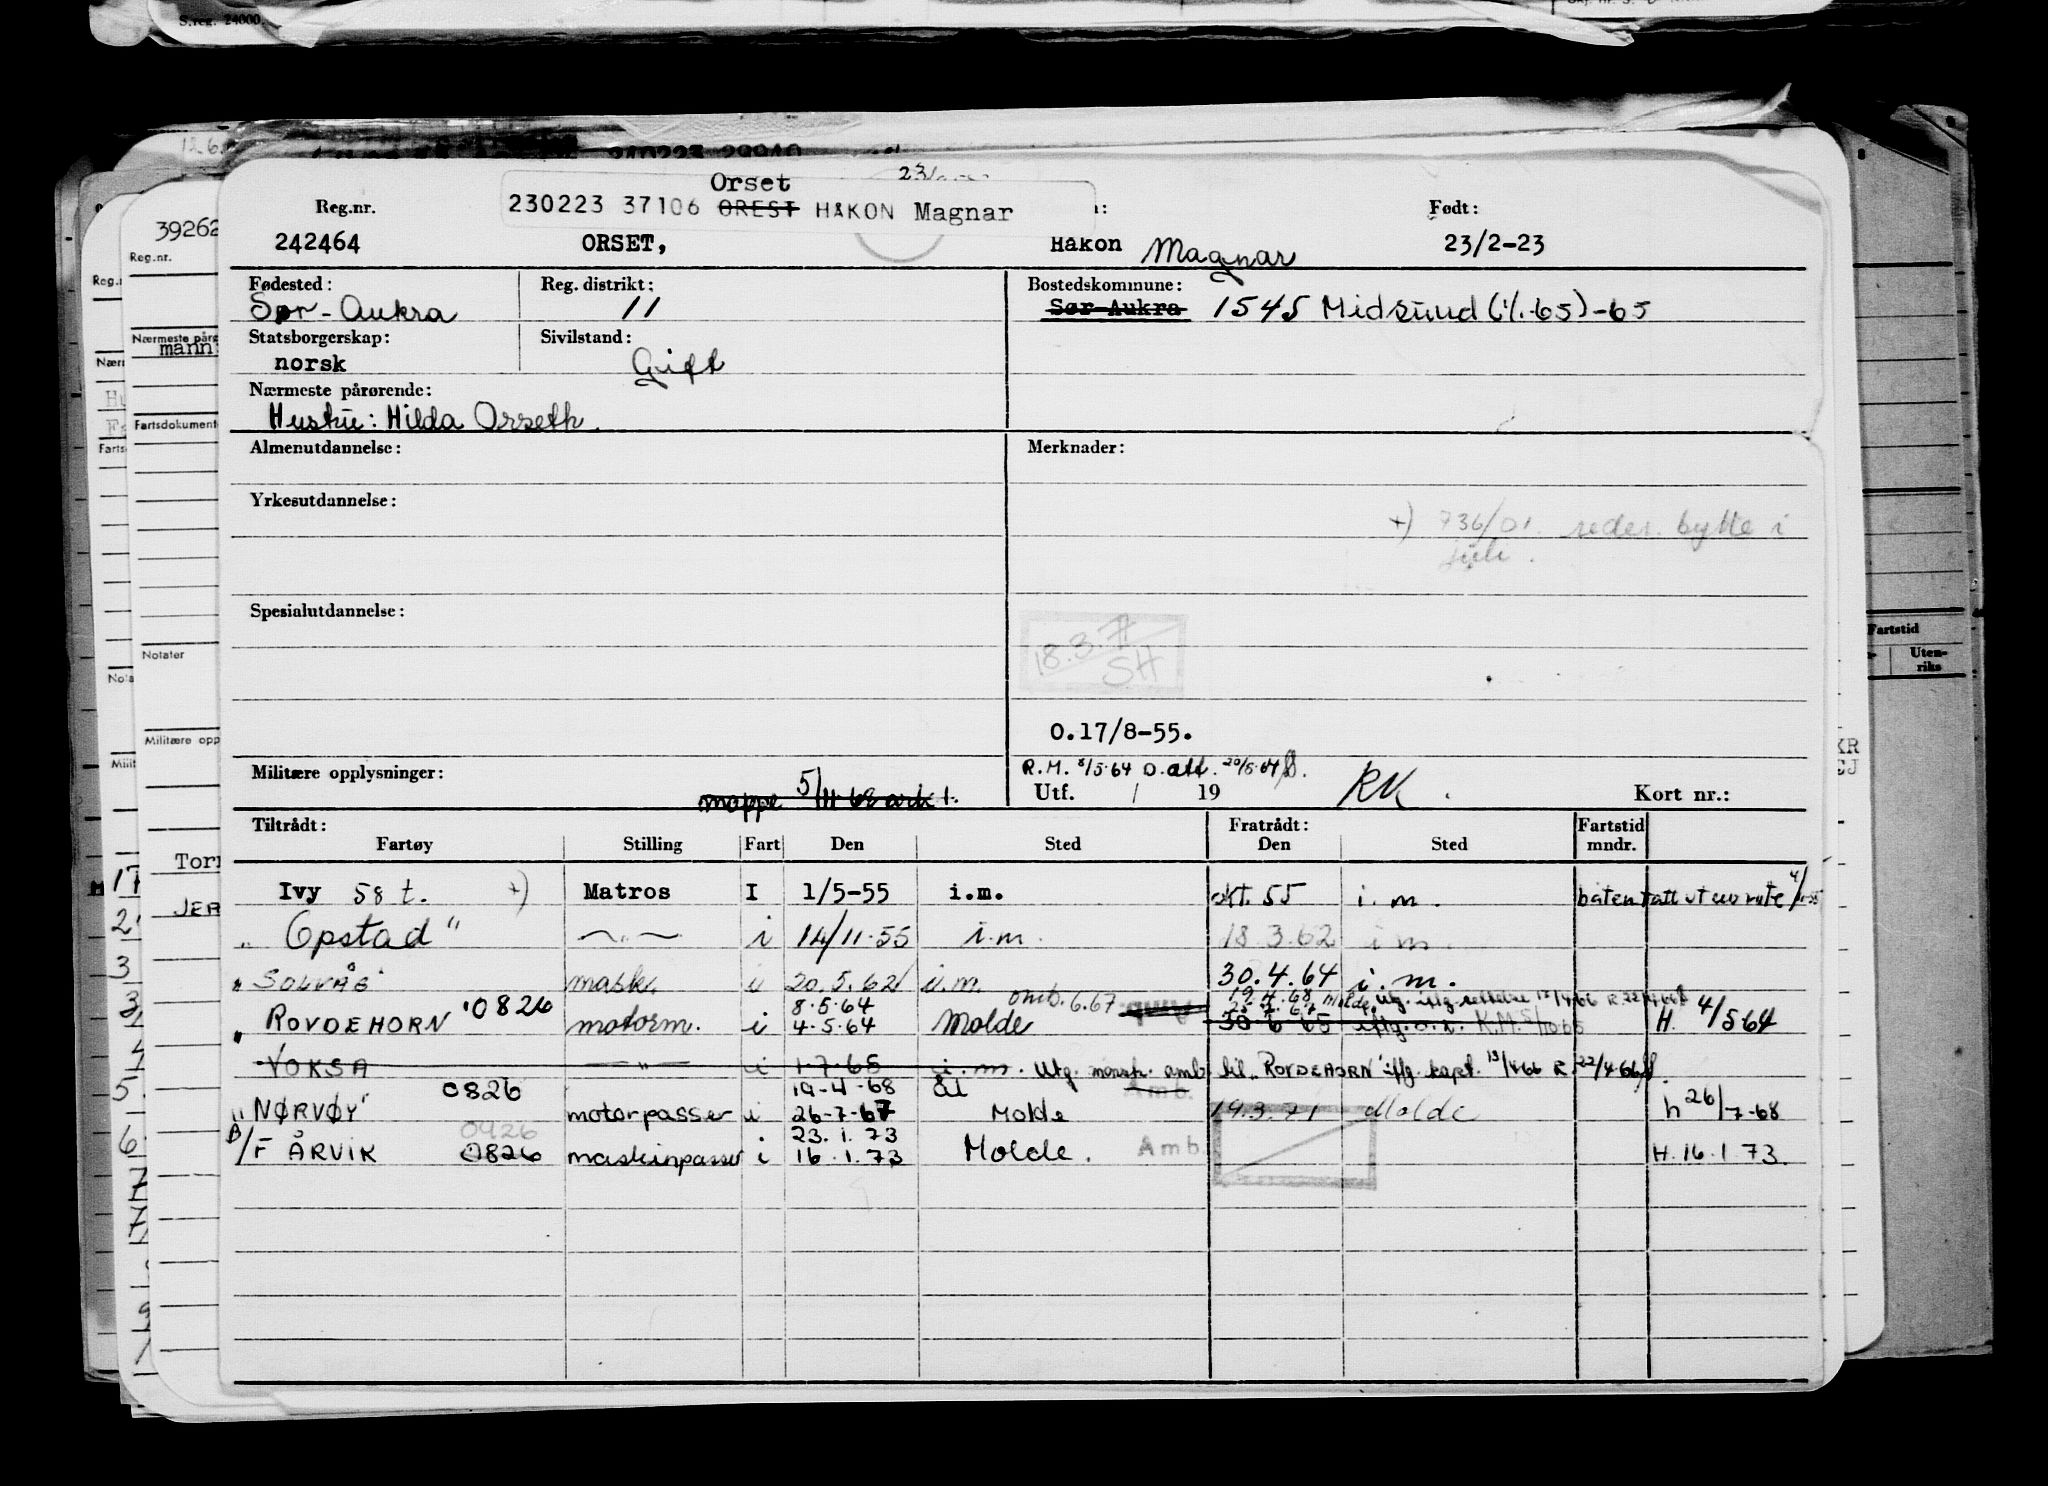 S.reg. 24000.
12.6.
Orset
230223 37106 OREST HÅKON Magnar
Reg.nr. Født:
242464 ORSET, Håkon Magnar 23/2-23
Fødested: Reg. distrikt: Bostedskommune:
Sør-Aukra 11 Sør-Aukra 1545 Midsund (1/1-65)-65
Statsborgerskap: Sivilstand:
norsk Gift
Nærmeste pårørende:
Hustru: Hilda Orseth.
Almenutdannelse: Merknader:
Yrkesutdannelse:
+) 736/01. reder. bytte i
juli.
Spesialutdannelse:
18.3.71
SH
O.17/8-55.
Militære opplysninger: R.M. 8/5.64 O.att. 20/5.64
mappe 5/ 68 ark 1. Utf. / 19 RK. Kort nr.:
Tiltrådt: Fratrådt: Fartstid
Fartøy Stilling Fart Den Sted Den Sted mndr.
Ivy 58 t. +) Matros I 1/5-55 i.m. okt. 55 i.m. båten tatt ut av rute 4/
" Opstad" —"— i 14/11-55 i.m. 18.3.62 i m.
" SOLVÅG" mask. i 20.5.62 i.m. 30.4.64 i.m.
8.5.64 omb. 6.67 19.4.68 Molde
" ROVDEHORN '0826 motorm. i 4.5.64 Molde 30 6 65 H. 4/5 64
VOKSA —"— i 1.7.65 i.m. Utg. mønstr. omb til "ROVDEHORN" iflg. kapt. 13/4 66 R. 22/4-66
0826 19-4-68 ÅL Amb.
"NØRVØY" motorpasser i 26-7-67 Molde 19.3.71 Molde h 26/7-68
0926 23.1.73
B/F ÅRVIK 0826 maskinpasser i 16.1.73 Molde. Amb. H. 16.1 73.
39262
Reg.nr.
Nærmeste pårø
mann
Fartsdokument
Notater
Militære opp
Torr
JER
Fartstid
Uten-
riks